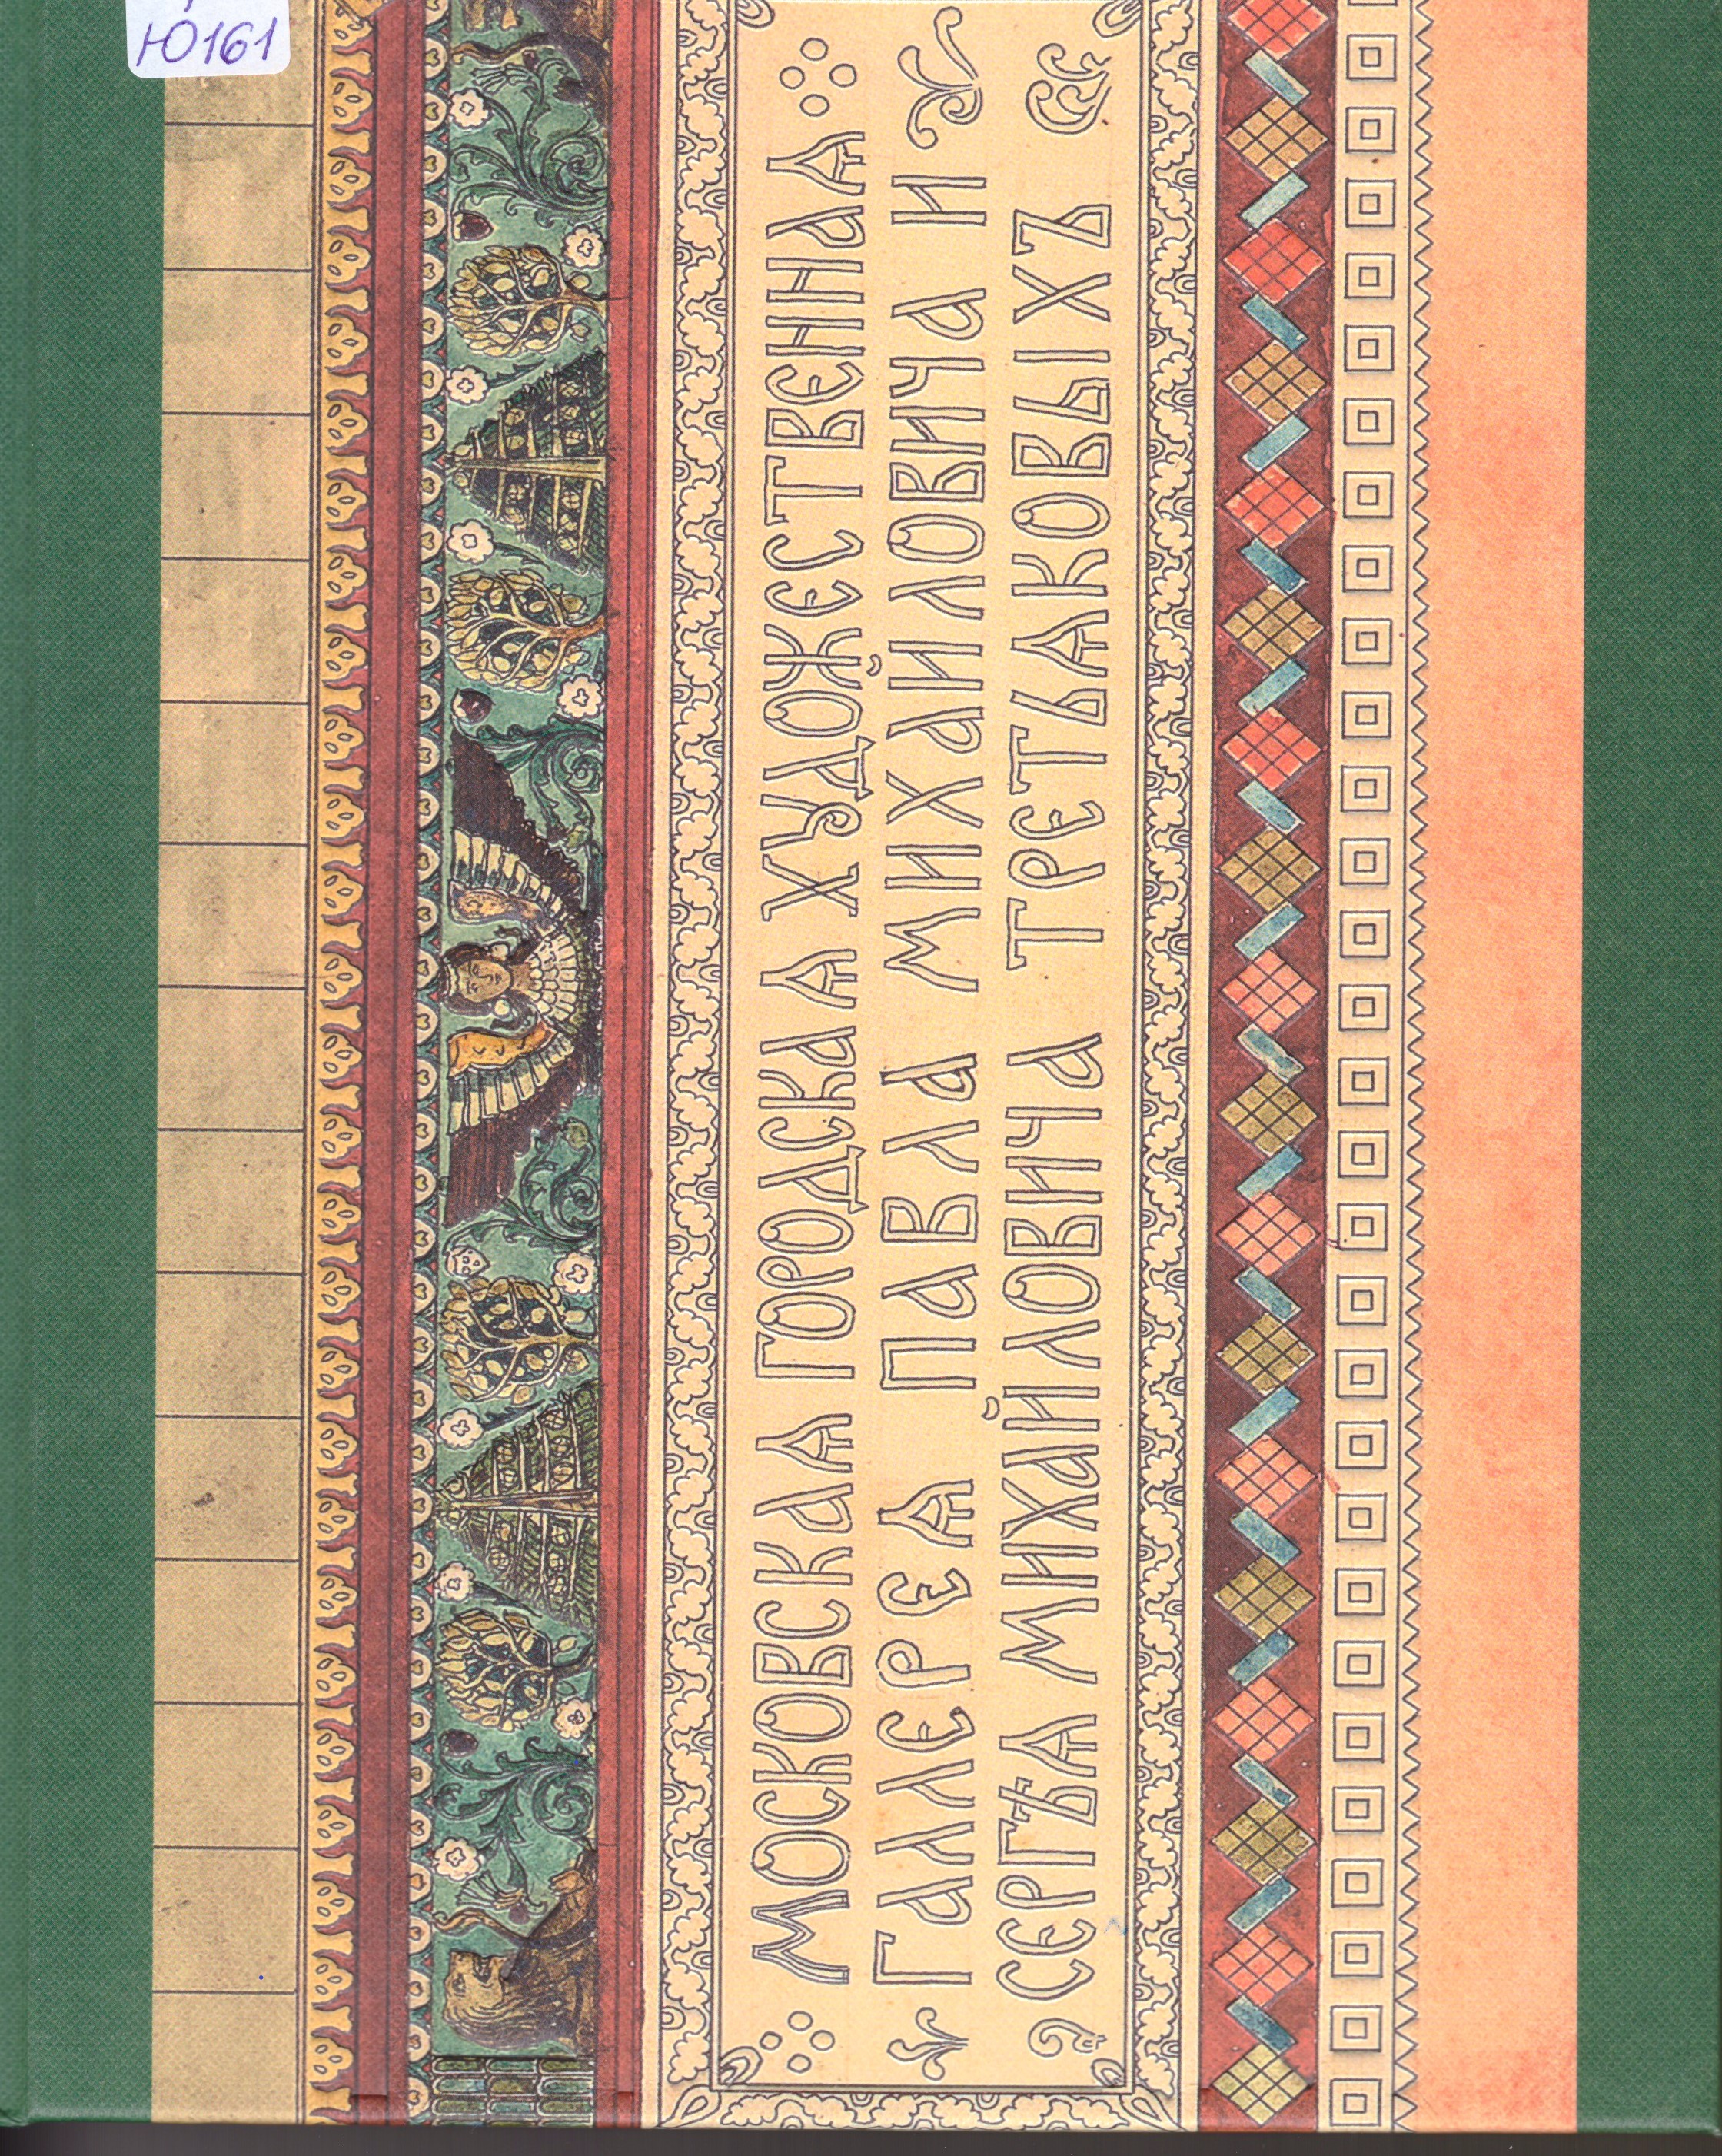 Ю161
МОСКОВСКАЯ ГОРОДСКАЯ ХУДОЖЕСТВЕННАЯ
ГАЛЛЕРЕЯ ПАВЛА МИХАЙЛОВИЧА И
СЕРГѢЯ МИХАЙЛОВИЧА ТРЕТЬЯКОВЫХЪ